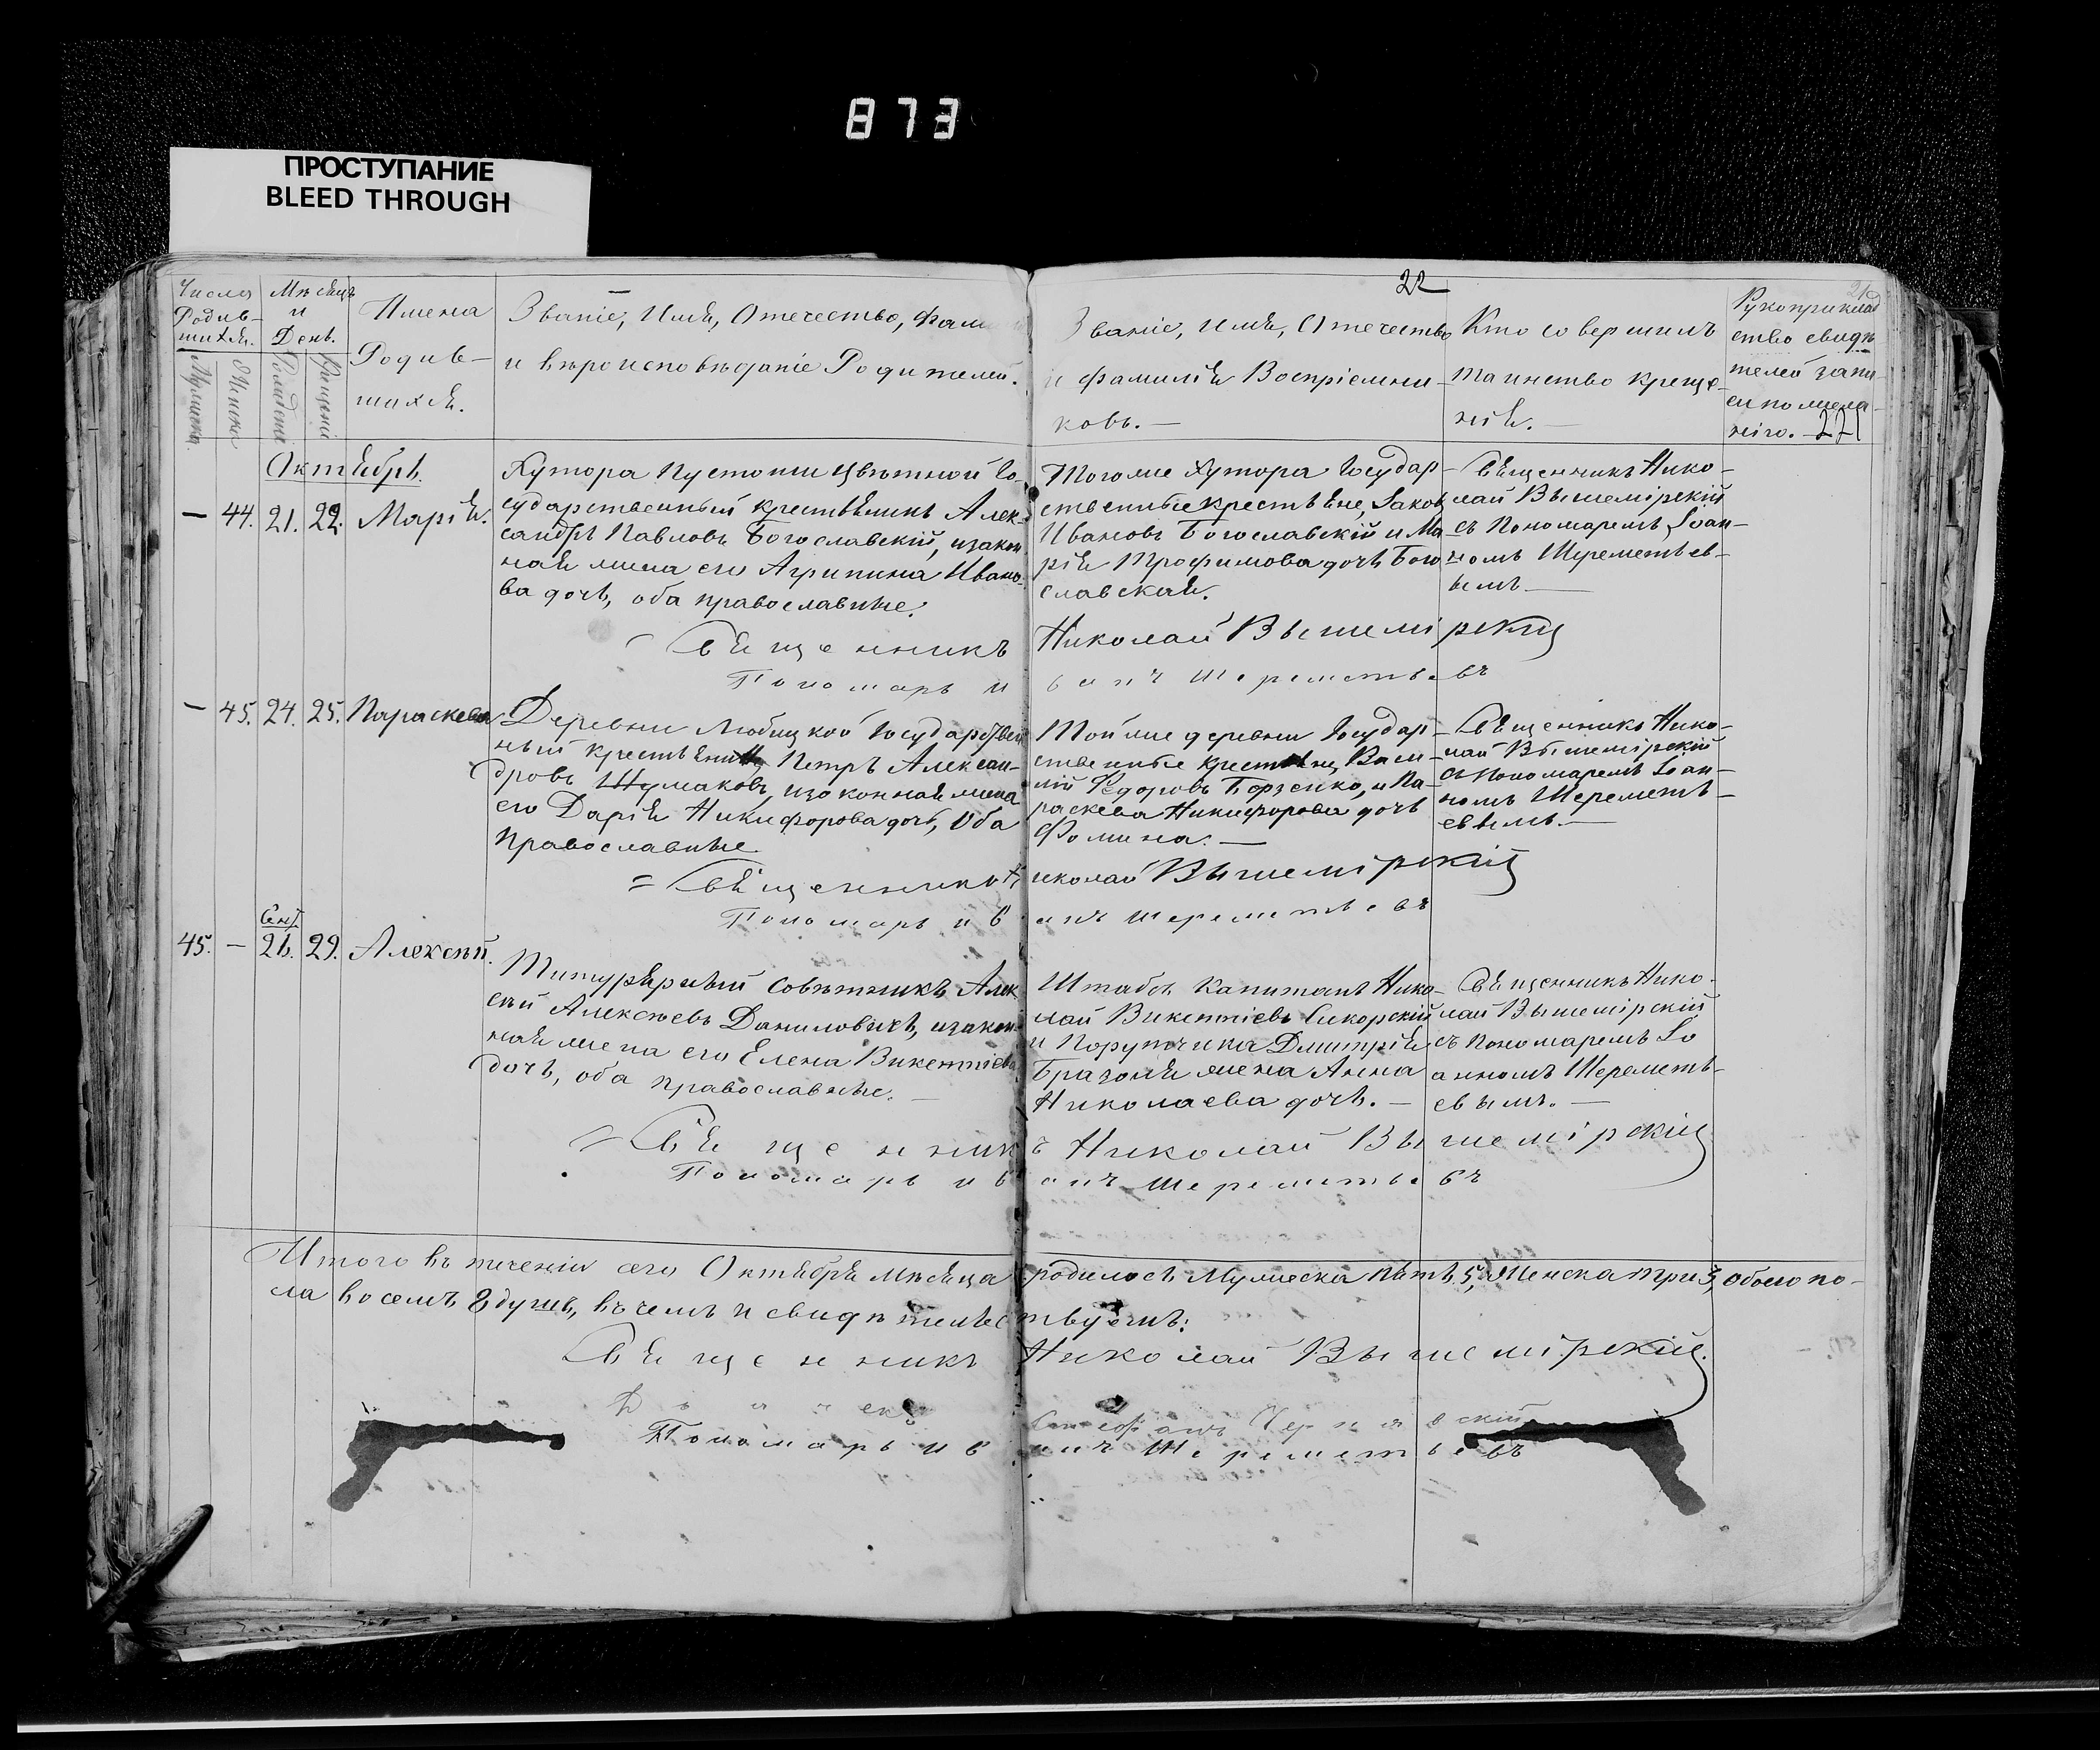 873
ПРОСТУПАНИЕ
BLEED THROUGH
22
Числа Родив-шихся.
Мужеска
Женска
Мѣсяцъ и День.
Рожденія
Крещенія
Имена
Родив-
шихся.
Званіе, Имя, Отечество, Фами
и вѣроисповѣданіе Родителей.
Званіе, имя, Отечество
и фамилія Воспріемни-
ковъ. —
Кто совершилъ
таинство креще-
нія. —
Рукоприклад
ство свидѣ
телей запи-
си по жела-
нію. — 221
Октябрь.
— 44. 21. 22. Марія.
Хутора Пустоши Цвѣтной Го-
сударственный крестьянинъ Алек-
сандръ Павловъ Богославскій, изакон
ная жена его Агрипина Ивано-
ва дочь, оба православные.
Тогоже Хутора Государ-
ственные крестьяне, Іаковъ
Ивановъ Богославскій и Ма
рія Трофимова дочь Бого
славская.
Священникъ Нико-
лай Вышемірскій
съ Пономаремъ Іоан-
номъ Шереметьев-
ымъ —
Священникъ Николай Вышемірскій
Пономарь Иванъ Шереметьевъ
— 45. 24. 25. Параскева
Деревни Любицкой Государствен
ный крестьянинъ Петръ Алексан-
дровъ Шумаковъ, изаконная жена
его Дарія Никифорова дочь, Оба
Православные
Той же деревни Государ-
ственные крестьяне, Васи-
лій Федоровъ Борзенко, и Па-
раскева Никифорова дочь
Фомина. —
Священникъ Нико-
лай Вышемірскій
съ пономаремъ Іоан-
номъ Шереметь-
евымъ. —
= Священникъ Николай Вышемірскій
Пономарь Иванъ Шереметьевъ
Сент.
45. — 26. 29. Алексѣй.
Титулярный Совѣтникъ Алек
сѣй Алексѣевъ Даниловичъ, изакон
ная жена его Елена Викентіева
дочь, оба православные. —
Штабсъ Капитанъ Нико-
лай Викентіевъ Сикорскій
и Порутчика Дмитрія
Бразоля жена Анна
Николаева дочь. —
Священникъ Нико-
лай Вышемірскій
съ пономаремъ Іо
анномъ Шереметь-
евымъ. —
Священникъ Николай Вышемірскій
Пономарь Иванъ Шереметьевъ
Итого въ теченіи сего Октября мѣсяца родилось Мужеска пять, 5, Женска три 3, обоего по-
ла восемь 8 душъ, въ чемъ и свидѣтельствуемъ:
Священникъ Николай Вышемірскій.
Дьячекъ Стефанъ
Пономарь Иванъ Шереметьевъ